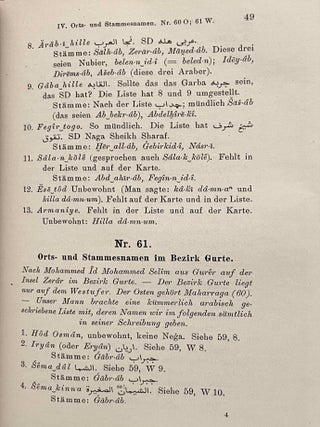 IV. Orts- und Stammesnamen. Nr. 60 O; 61 W. 49
8. Ärāb-ı_hille نجا العرب SD عربى هله.
Stämme: Ṣalḥ-áb, Zeráz-áb, Máyed-áb. Diese drei
seien Nubier, belen-n_id-i (= beled-n); Idēy-áb,
Dirēms-áb, Ašeb-áb (diese drei Araber).
9. Gába_hille جربه Sollte das das Garba
sein, das SD hat? Die Liste hat 8 und 9 umgestellt.
Stämme: Nach der Liste جداب; mündlich
(das seien Ab_bekr-áb),
10. Fegīr_togo. So mündlich. Die Liste hat شيخ شرف
SD Naga Sheikh Sharaf.
Stämme: Ḫēr_all-áb, Gebirkid-i, Násr-i.
11. Sála-n_kōlē (gesprochen auch Sála_k_kōlē). Fehlt in
der Liste und auf der Karte.
Stämme: Abd_ahár-áb, Fegīn-n_id-i.
12. Unbewohnt (Man sagte: und
hilla dá-mn-um). Fehlt in der Liste und auf der Karte.
13. Armaniye. Fehlt in der Liste und auf der Karte.
Unbewohnt: Hilla dá-mn-um.
Nr. 61.
Orts- und Stammesnamen im Bezirk Gurte.
Nach Mohammed Īd Mohammed Selīm aus Gurēr auf der
Insel Zerár im Bezirk Gurte. — Der Bezirk Gurte liegt
nur auf dem Westufer. Der Osten gehört Maharraga (60).
— Unser Mann brachte eine kümmerlich arabisch ge-
schriebene Liste mit, deren Namen wir im folgenden sämtlich
in seiner Schreibung geben.
1. Hōd Osmān, unbewohnt, keine Nega. Siehe 59, W 8.
2. Iryān (oder Eryān) اريان. Siehe 59, W 8.
Stämme: Gábr-áb جبراب
3. Šēma_dúl الشما. Siehe 59, W 9.
Stämme: Gábr-áb جبراب
4. Šēma_kinna الشيمان الصغيرة Siehe 59, W 10.
Stämme: Gábr-áb.
4